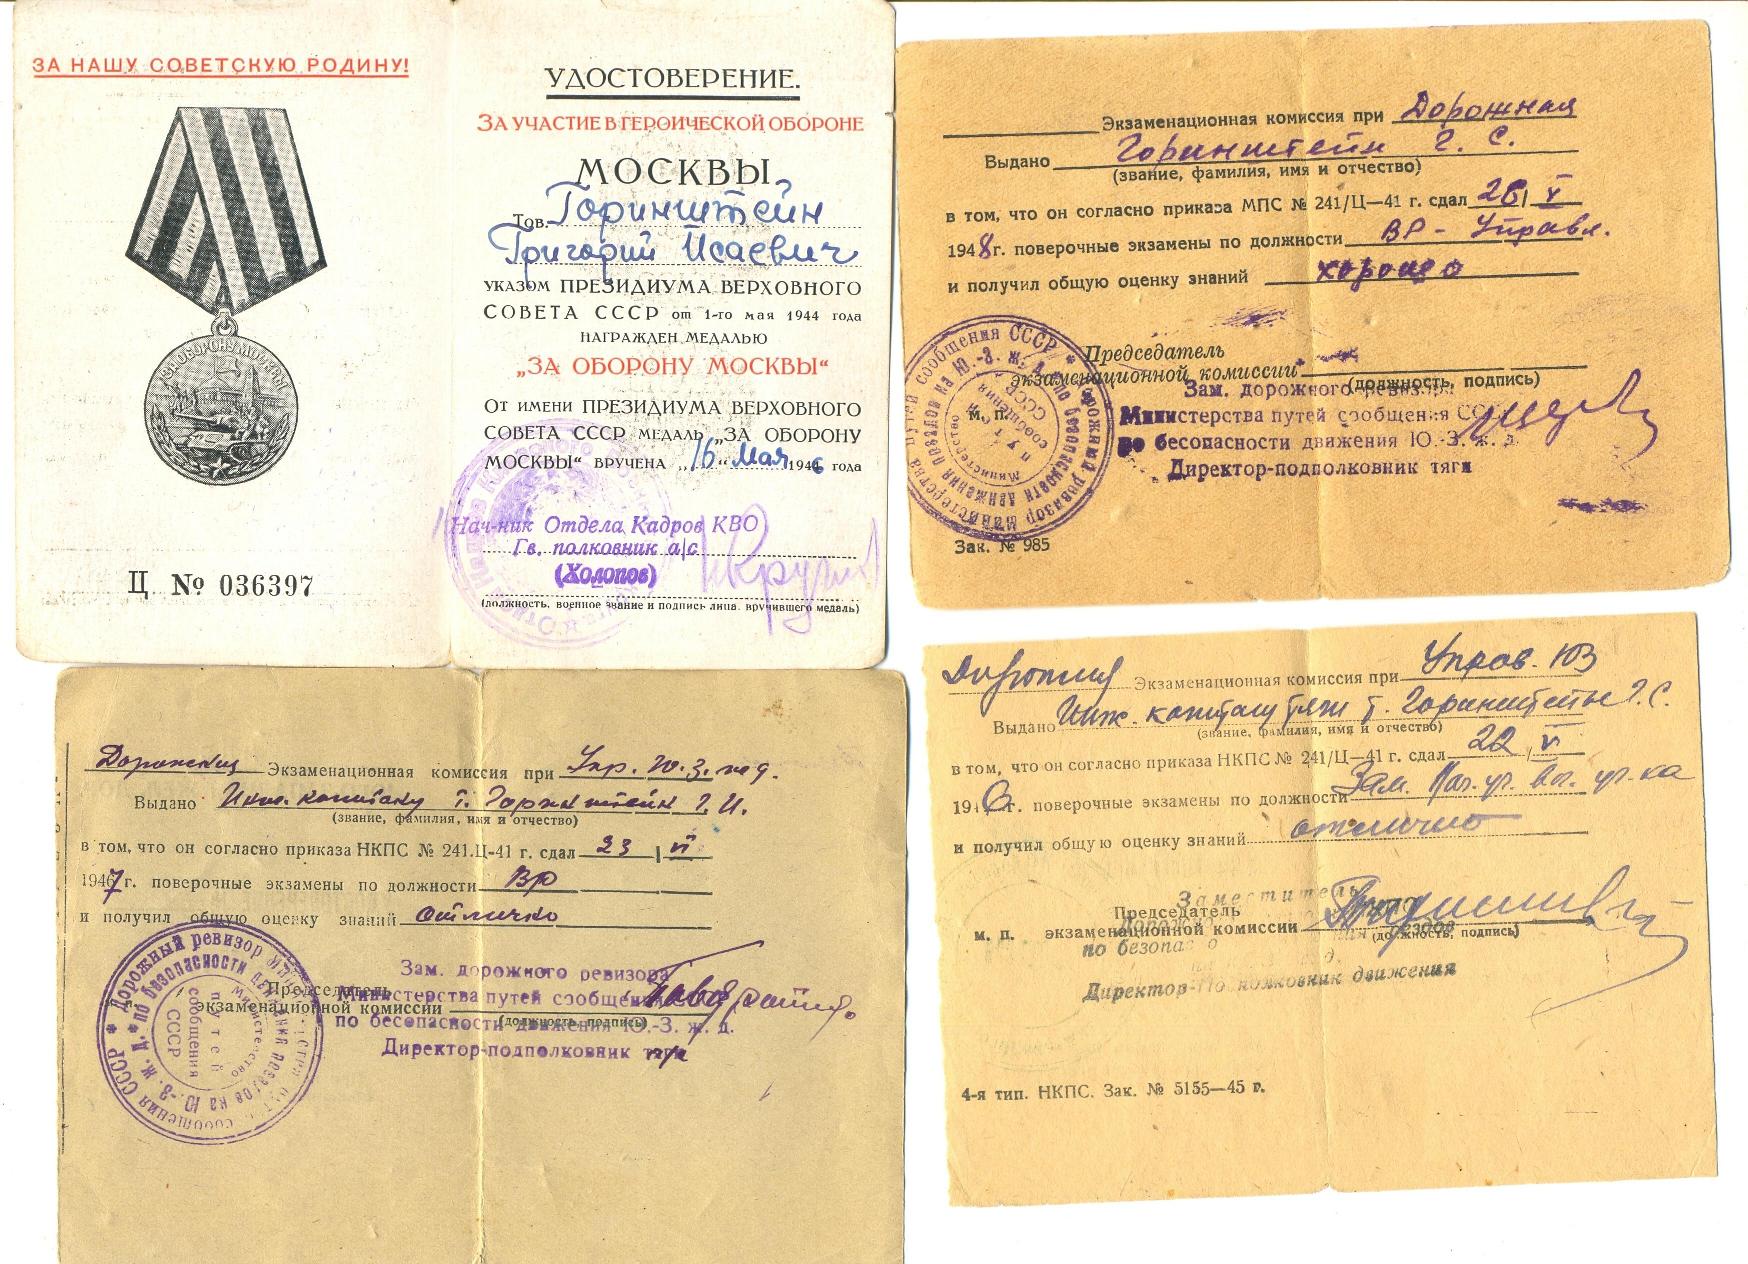 ЗА НАШУ СОВЕТСКУЮ РОДИНУ!
ЗА ОБОРОНУ МОСКВЫ
Ц. № 036397
УДОСТОВЕРЕНИЕ.
ЗА УЧАСТИЕ В ГЕРОИЧЕСКОЙ ОБОРОНЕ
МОСКВЫ
Тов. Горинштейн
Григорий Исаевич
УКАЗОМ ПРЕЗИДИУМА ВЕРХОВНОГО
СОВЕТА СССР от 1-го мая 1944 года
НАГРАЖДЕН МЕДАЛЬЮ
„ЗА ОБОРОНУ МОСКВЫ“
От имени ПРЕЗИДИУМА ВЕРХОВНОГО
СОВЕТА СССР МЕДАЛЬ „ЗА ОБОРОНУ
МОСКВЫ“ ВРУЧЕНА „16“ Мая 1946 года
Нач-ник Отдела Кадров КВО
Гв. полковник а/с
(Холопов)
(должность, военное звание и подпись лица, вручившего медаль)
Экзаменационная комиссия при Дорожная
Выдано Горинштейн Г. С.
(звание, фамилия, имя и отчество)
в том, что он согласно приказа МПС № 241/Ц—41 г. сдал 26/V
1948г. поверочные экзамены по должности ВР - Управл.
и получил общую оценку знаний хорошо
Председатель
экзаменационной комиссии
(должность, подпись)
м. п.
Зам. дорожного ревизора
Министерства путей сообщения СССР
по безопасности движения Ю.-З. ж. д.
Директор-подполковник тяги
Зак. № 985
Дорожная Экзаменационная комиссия при Упр. Ю.З. ж д.
Выдано Инж. капитану т. Горинштейн Г. И.
(звание, фамилия, имя и отчество)
в том, что он согласно приказа НКПС № 241.Ц-41 г. сдал 23/VI
1947г. поверочные экзамены по должности ВР
и получил общую оценку знаний отлично
Председатель
экзаменационной комиссии
(должность, подпись)
Зам. дорожного ревизора
Министерства путей сообщения
по безопасности движения Ю.-З. ж. д.
Директор-подполковник тяги
Дорожный ревизор
по безопасности движения поездов на Ю.-З. ж. д.
Министерство путей сообщения СССР
Экзаменационная комиссия при Управ. ЮЗ
Выдано Инж. капитану тяги т. Горинштейн Г. С.
(звание, фамилия, имя и отчество)
в том, что он согласно приказа НКПС № 241/Ц—41 г. сдал 22/VI
1946г. поверочные экзамены по должности Зам. Нач. уч. ваг. уч-ка
и получил общую оценку знаний отлично
Председатель
м. п. экзаменационной комиссии
(должность, подпись)
Заместитель
Директор-Подполковник движения
4-я тип. НКПС. Зак. № 5155—45 г.